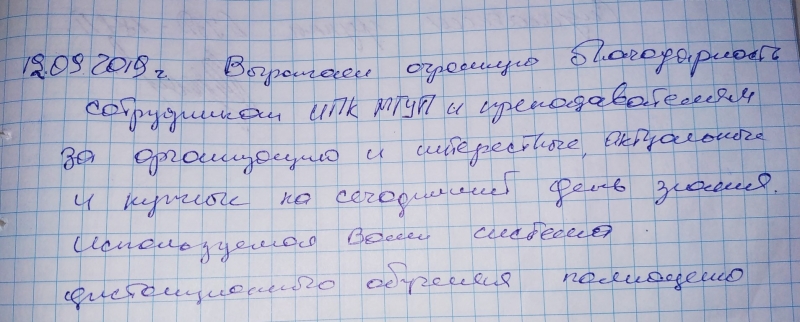 19.09.2019 г. Выражаем огромную благодарность
сотрудникам ИПК МГУП и преподавателям
за организацию и интересные, актуальные
и нужные на сегодняшний день знания.
Используемая Вами система
дистанционного обучения полноценно